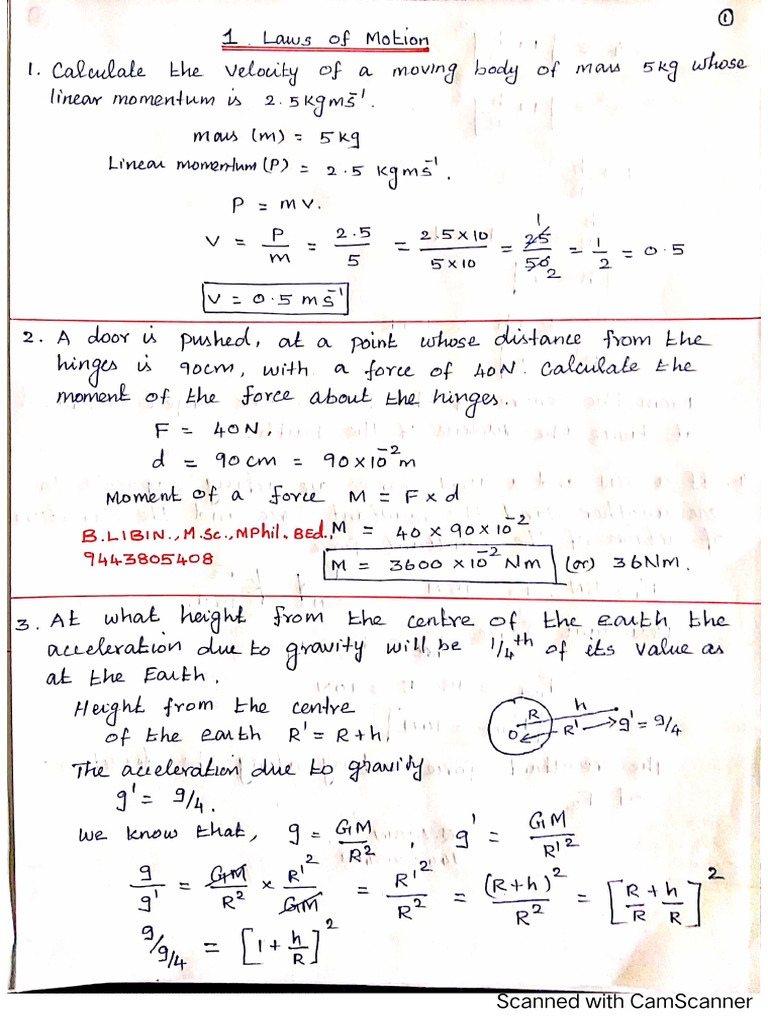 ①
1. Laws of Motion
1. Calculate the velocity of a moving body of mass 5kg whose
linear momentum is 2.5 kgms⁻¹.
mass (m) = 5 kg
Linear momentum (P) = 2.5 kgms⁻¹.
P = mv.
V = P/m = 2.5/5 = 2.5×10/5×10 = 25/50 = 1/2 = 0.5
V = 0.5 ms⁻¹
2. A door is pushed, at a point whose distance from the
hinges is 90cm, with a force of 40N. Calculate the
moment of the force about the hinges.
F = 40N,
d = 90 cm = 90×10⁻² m
Moment of a force M = F × d
B.LIBIN., M.Sc., MPhil. BEd., M = 40 × 90 × 10⁻²
9443805408 M = 3600 × 10⁻² Nm (or) 36Nm.
3. At what height from the centre of the earth the
acceleration due to gravity will be 1/4th of its value as
at the Earth.
Height from the centre
of the earth R' = R + h,
R h
O R' g' = g/4
The acceleration due to gravity
g' = g/4.
We know that, g = GM/R², g' = GM/R'²
g/g' = GM/R² × R'²/GM = R'²/R² = (R+h)²/R² = [R/R + h/R]²
g/g/4 = [1 + h/R]²
Scanned with CamScanner